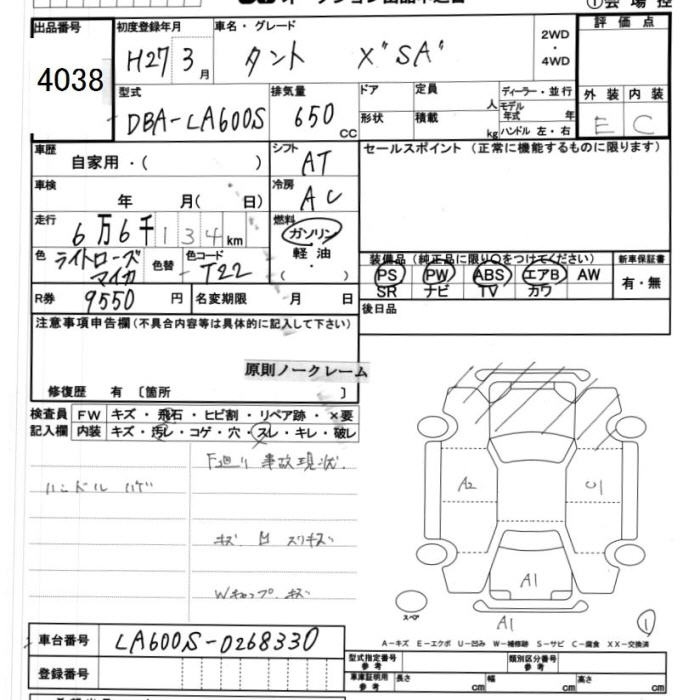 オークション出品申込書
①会場控
出品番号 初度登録年月 車名・グレード 2WD・4WD 評価点
4038 H27 3月 タント X"SA"
型式 排気量 ドア 定員 人 ディーラー・並行 外装 内装
DBA-LA600S 650cc 形状 積載 kg モデル年式 年 ハンドル 左・右 E C
車歴 自家用・( ) シフト AT セールスポイント(正常に機能するものに限ります)
車検 年 月( 日) 冷房 AC
走行 6万6千134km 燃料 ガソリン 軽油・( )
色 ライトローズマイカ 色替 色コード T22
装備品(純正品に限り○をつけてください) 新車保証書
PS PW ABS エアB AW 有・無
SR ナビ TV カワ
R券 9550円 名変期限 月 日 後日品
注意事項申告欄(不具合内容等は具体的に記入して下さい)
原則ノークレーム
修復歴 有〔箇所 〕
検査員 FW キズ・飛石・ヒビ割・リペア跡・×要
記入欄 内装 キズ・汚レ・コゲ・穴・スレ・キレ・破レ
F廻り 事故現状.
ハンドル ハゲ
キズ 凹 スリキズ
Wキャップ キズ
A2 U1
A1
スペア A1 1
A-キズ E-エクボ U-凹み W-補修跡 S-サビ C-腐食 XX-交換済
車台番号 LA600S-0268330
型式指定番号 参考 類別区分番号 参考
登録番号 車庫証明用 参考 長さ cm 幅 cm 高さ cm